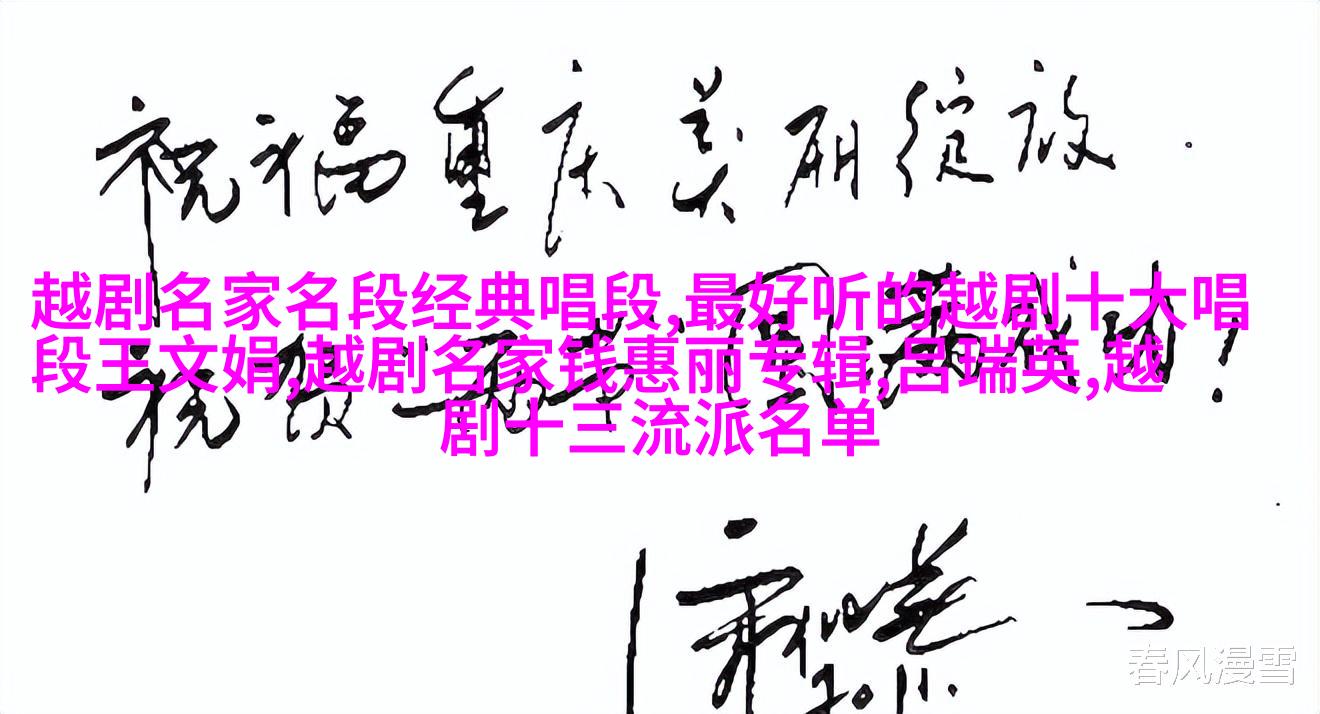 祝福重庆美丽绽放.
越剧名家名段经典唱段,最好听的越剧十大唱
段王文娟,越剧名家钱惠丽专辑,吕瑞英,越
剧十三流派名单
祝贺
圆满成功!
2011.
春风漫雪